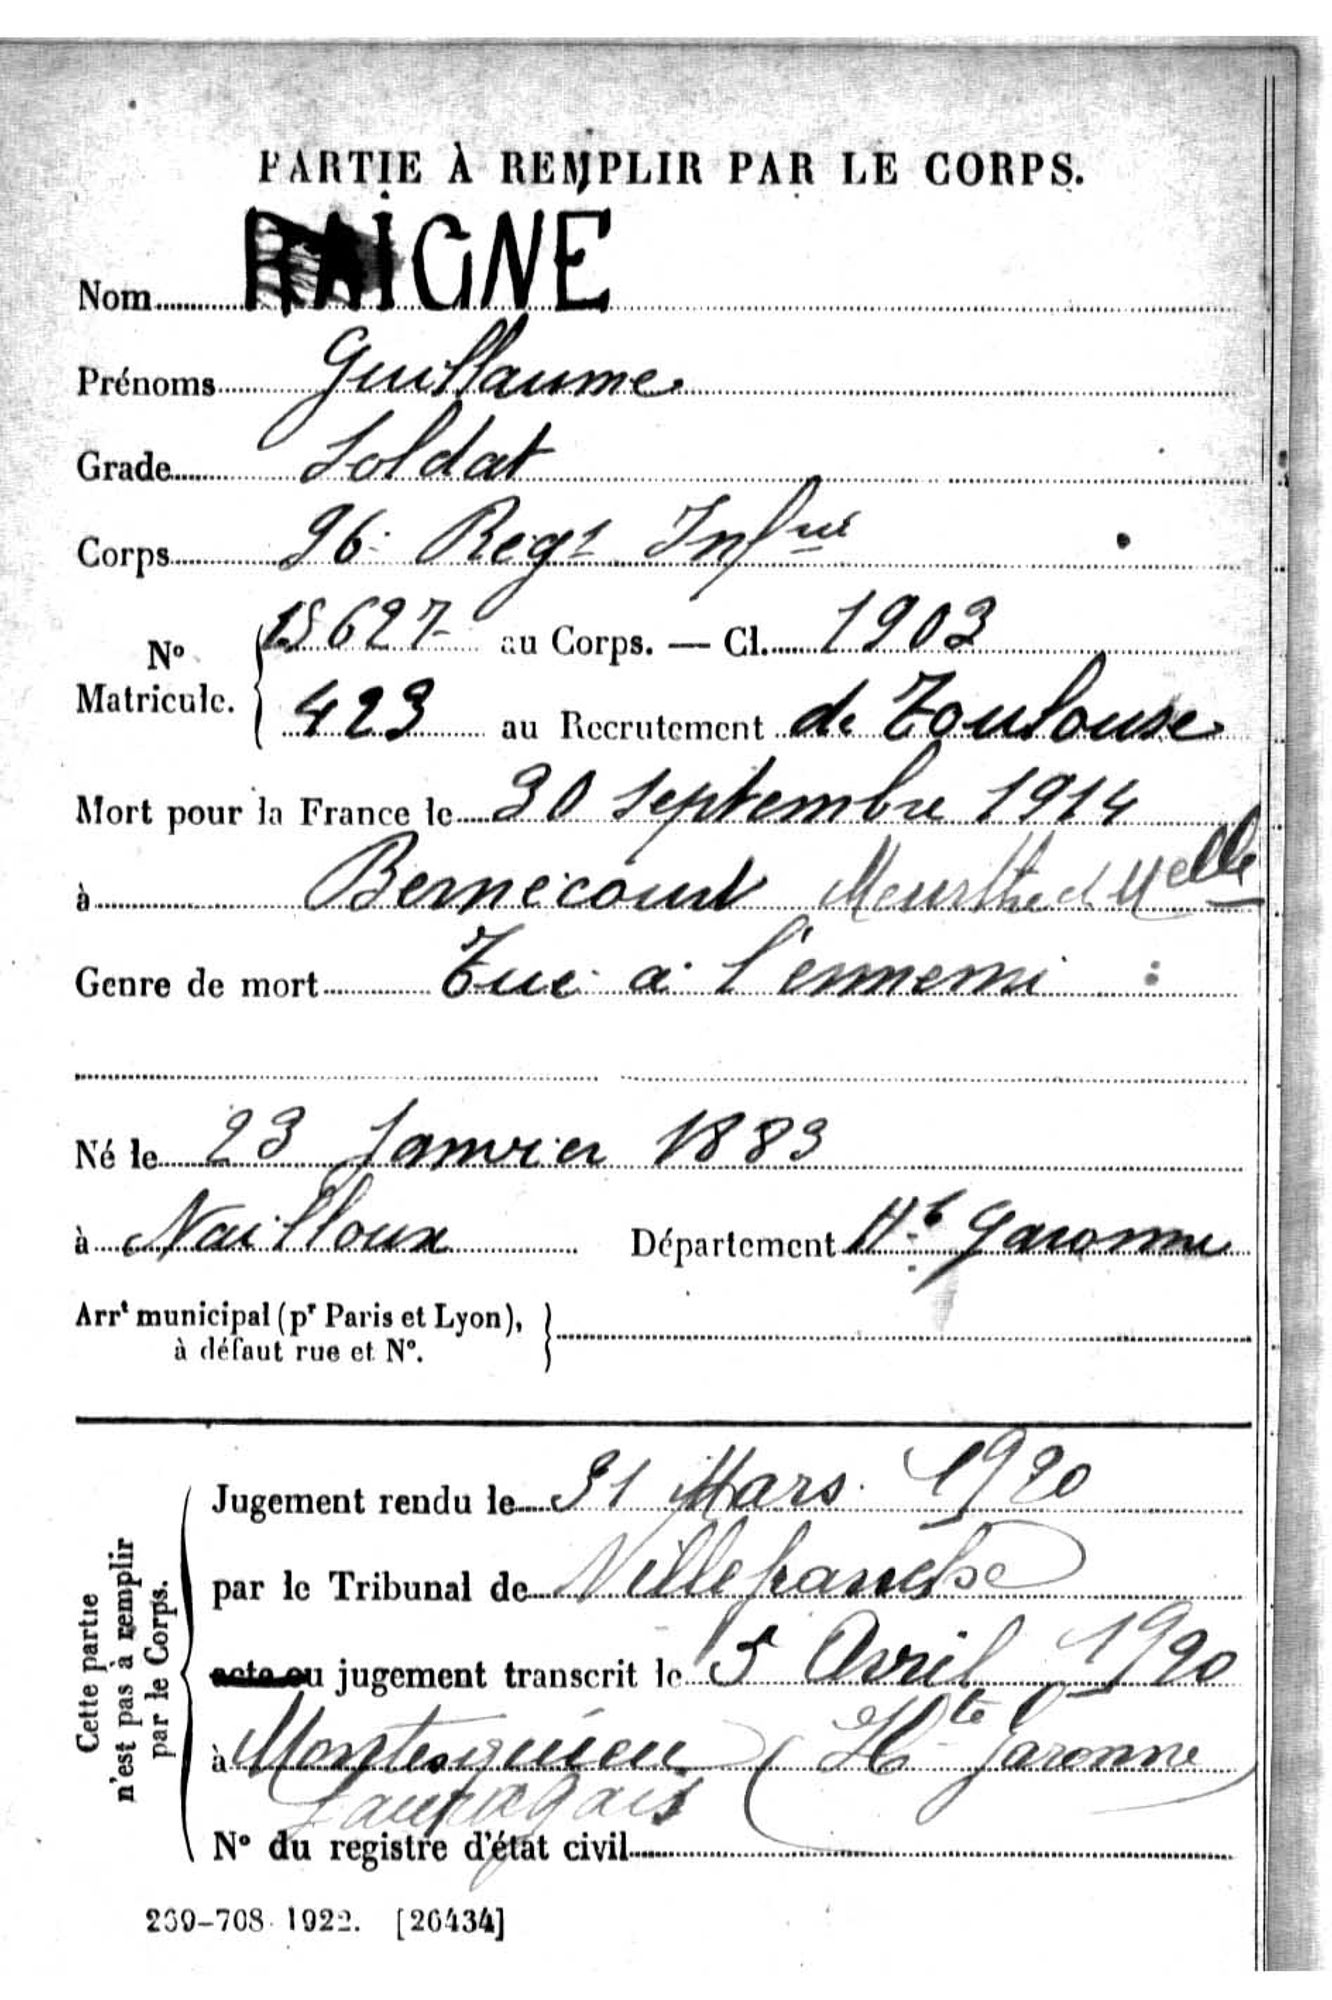 PARTIE À REMPLIR PAR LE CORPS.
Nom
Prénoms Guillaume
Grade Soldat
Corps 96e Regt Infrie
No Matricule. 15627 au Corps. — Cl. 1903
423 au Recrutement de Toulouse
Mort pour la France le 30 septembre 1914
à Bernecourt Meurthe et Melle
Genre de mort Tué à l'ennemi
Né le 23 Janvier 1883
à Nailloux Département Hte Garonne
Arrt municipal (pr Paris et Lyon),
à défaut rue et No.
Cette partie
n'est pas à remplir
par le Corps.
Jugement rendu le 31 Mars 1920
par le Tribunal de Villefranche
acte ou jugement transcrit le 5 Avril 1920
à Montesquieu (Hte Garonne
Lauragais
No du registre d'état civil
269-708 1922. [26434]